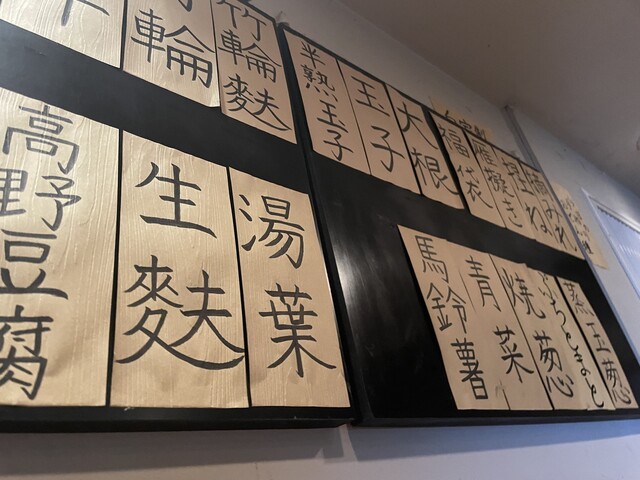 竹輪
竹輪麩
高野豆腐
生麩
湯葉
半熟玉子
玉子
大根
福袋
雁擬き
馬鈴薯
青菜
焼葱
蒸玉葱